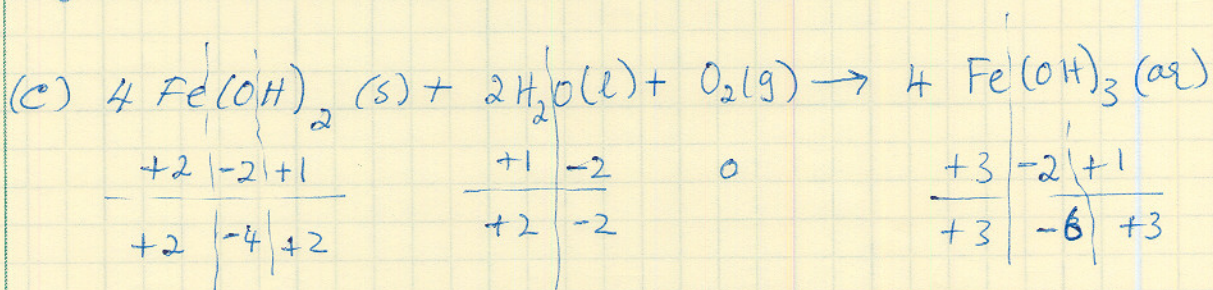 (c) 4 Fe(OH)₂ (s) + 2H₂O(l) + O₂(g) → 4 Fe(OH)₃ (aq)
+2 | -2 | +1 +1 | -2 0 +3 | -2 | +1
+2 | -4 | +2 +2 | -2 +3 | -6 | +3